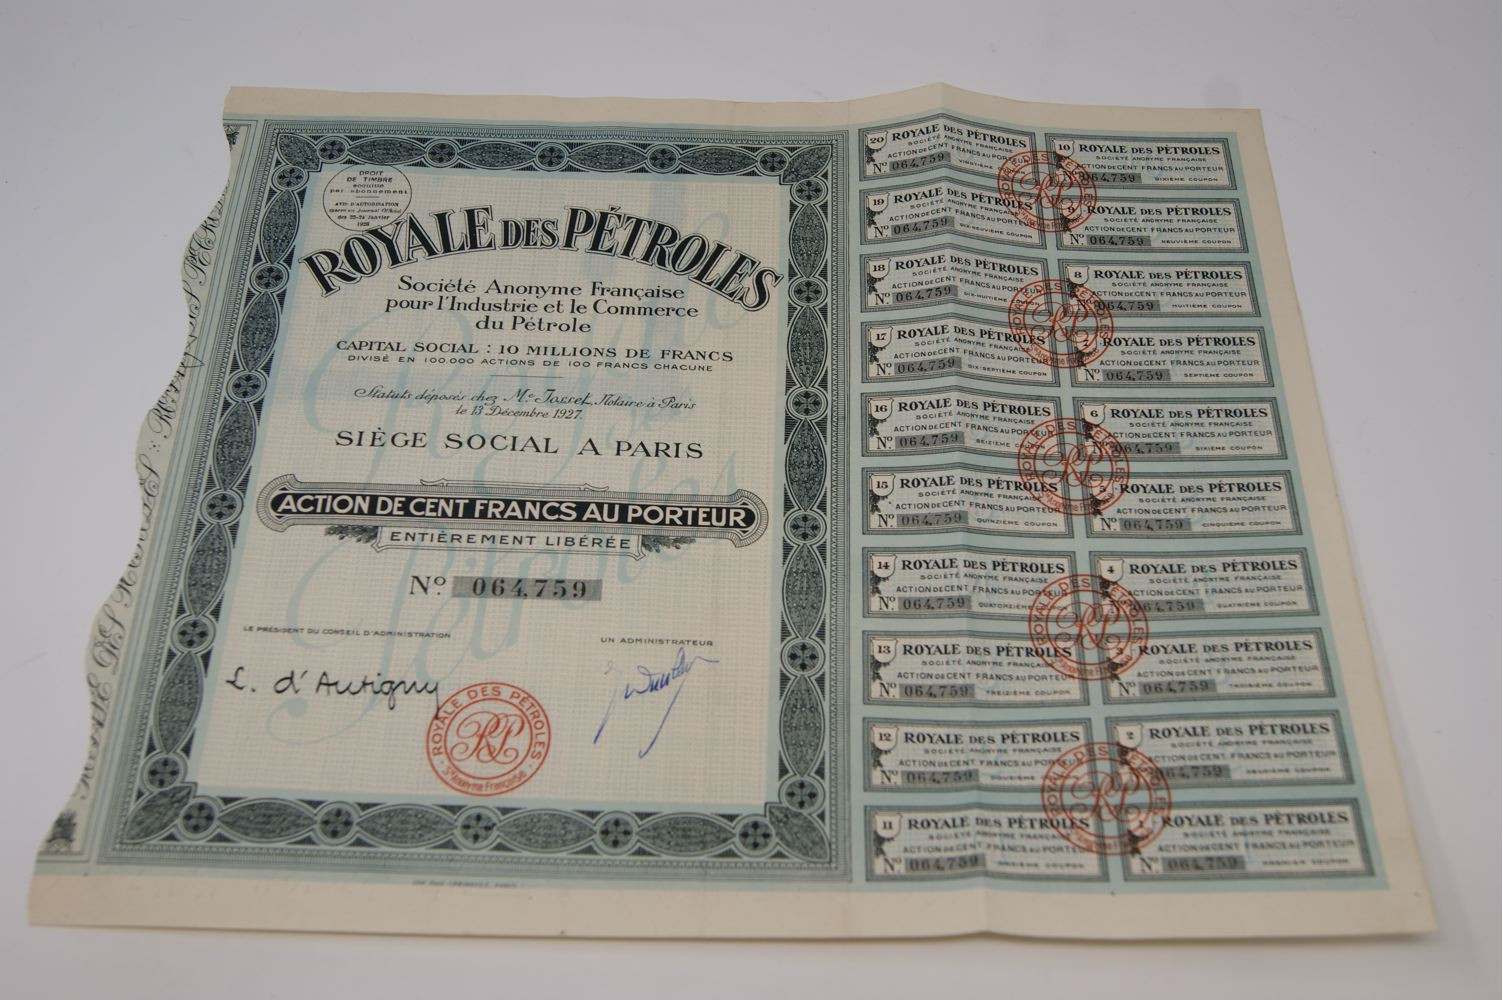 DROIT
DE TIMBRE
acquitté
par abonnement
AVIS D'AUTORISATION
inséré au Journal Officiel
des 23-24 Janvier
1928
ROYALE DES PÉTROLES
Société Anonyme Française
pour l'Industrie et le Commerce
du Pétrole
CAPITAL SOCIAL : 10 MILLIONS DE FRANCS
DIVISÉ EN 100.000 ACTIONS DE 100 FRANCS CHACUNE
Statuts déposés chez Me Josset, Notaire à Paris
le 13 Décembre 1927.
SIÈGE SOCIAL A PARIS
ACTION DE CENT FRANCS AU PORTEUR
ENTIÈREMENT LIBÉRÉE
No. 064,759
LE PRÉSIDENT DU CONSEIL D'ADMINISTRATION
UN ADMINISTRATEUR
L. d'Autigny
ROYALE DES PÉTROLES
Sté Anonyme Française
20 ROYALE DES PÉTROLES
SOCIÉTÉ ANONYME FRANÇAISE
ACTION DE CENT FRANCS AU PORTEUR
No 064,759 VINGTIÈME COUPON
10 ROYALE DES PÉTROLES
SOCIÉTÉ ANONYME FRANÇAISE
ACTION DE CENT FRANCS AU PORTEUR
No 064,759 DIXIÈME COUPON
19 ROYALE DES PÉTROLES
SOCIÉTÉ ANONYME FRANÇAISE
ACTION DE CENT FRANCS AU PORTEUR
No 064,759 DIX-NEUVIÈME COUPON
9 ROYALE DES PÉTROLES
SOCIÉTÉ ANONYME FRANÇAISE
ACTION DE CENT FRANCS AU PORTEUR
No 064,759 NEUVIÈME COUPON
18 ROYALE DES PÉTROLES
SOCIÉTÉ ANONYME FRANÇAISE
ACTION DE CENT FRANCS AU PORTEUR
No 064,759 DIX-HUITIÈME COUPON
8 ROYALE DES PÉTROLES
SOCIÉTÉ ANONYME FRANÇAISE
ACTION DE CENT FRANCS AU PORTEUR
No 064,759 HUITIÈME COUPON
17 ROYALE DES PÉTROLES
SOCIÉTÉ ANONYME FRANÇAISE
ACTION DE CENT FRANCS AU PORTEUR
No 064,759 DIX-SEPTIÈME COUPON
7 ROYALE DES PÉTROLES
SOCIÉTÉ ANONYME FRANÇAISE
ACTION DE CENT FRANCS AU PORTEUR
No 064,759 SEPTIÈME COUPON
16 ROYALE DES PÉTROLES
SOCIÉTÉ ANONYME FRANÇAISE
ACTION DE CENT FRANCS AU PORTEUR
No 064,759 SEIZIÈME COUPON
6 ROYALE DES PÉTROLES
SOCIÉTÉ ANONYME FRANÇAISE
ACTION DE CENT FRANCS AU PORTEUR
No 064,759 SIXIÈME COUPON
15 ROYALE DES PÉTROLES
SOCIÉTÉ ANONYME FRANÇAISE
ACTION DE CENT FRANCS AU PORTEUR
No 064,759 QUINZIÈME COUPON
5 ROYALE DES PÉTROLES
SOCIÉTÉ ANONYME FRANÇAISE
ACTION DE CENT FRANCS AU PORTEUR
No 064,759 CINQUIÈME COUPON
14 ROYALE DES PÉTROLES
SOCIÉTÉ ANONYME FRANÇAISE
ACTION DE CENT FRANCS AU PORTEUR
No 064,759 QUATORZIÈME COUPON
4 ROYALE DES PÉTROLES
SOCIÉTÉ ANONYME FRANÇAISE
ACTION DE CENT FRANCS AU PORTEUR
No 064,759 QUATRIÈME COUPON
13 ROYALE DES PÉTROLES
SOCIÉTÉ ANONYME FRANÇAISE
ACTION DE CENT FRANCS AU PORTEUR
No 064,759 TREIZIÈME COUPON
3 ROYALE DES PÉTROLES
SOCIÉTÉ ANONYME FRANÇAISE
ACTION DE CENT FRANCS AU PORTEUR
No 064,759 TROISIÈME COUPON
12 ROYALE DES PÉTROLES
SOCIÉTÉ ANONYME FRANÇAISE
ACTION DE CENT FRANCS AU PORTEUR
No 064,759 DOUZIÈME COUPON
2 ROYALE DES PÉTROLES
SOCIÉTÉ ANONYME FRANÇAISE
ACTION DE CENT FRANCS AU PORTEUR
No 064,759 DEUXIÈME COUPON
11 ROYALE DES PÉTROLES
SOCIÉTÉ ANONYME FRANÇAISE
ACTION DE CENT FRANCS AU PORTEUR
No 064,759 ONZIÈME COUPON
1 ROYALE DES PÉTROLES
SOCIÉTÉ ANONYME FRANÇAISE
ACTION DE CENT FRANCS AU PORTEUR
No 064,759 PREMIER COUPON